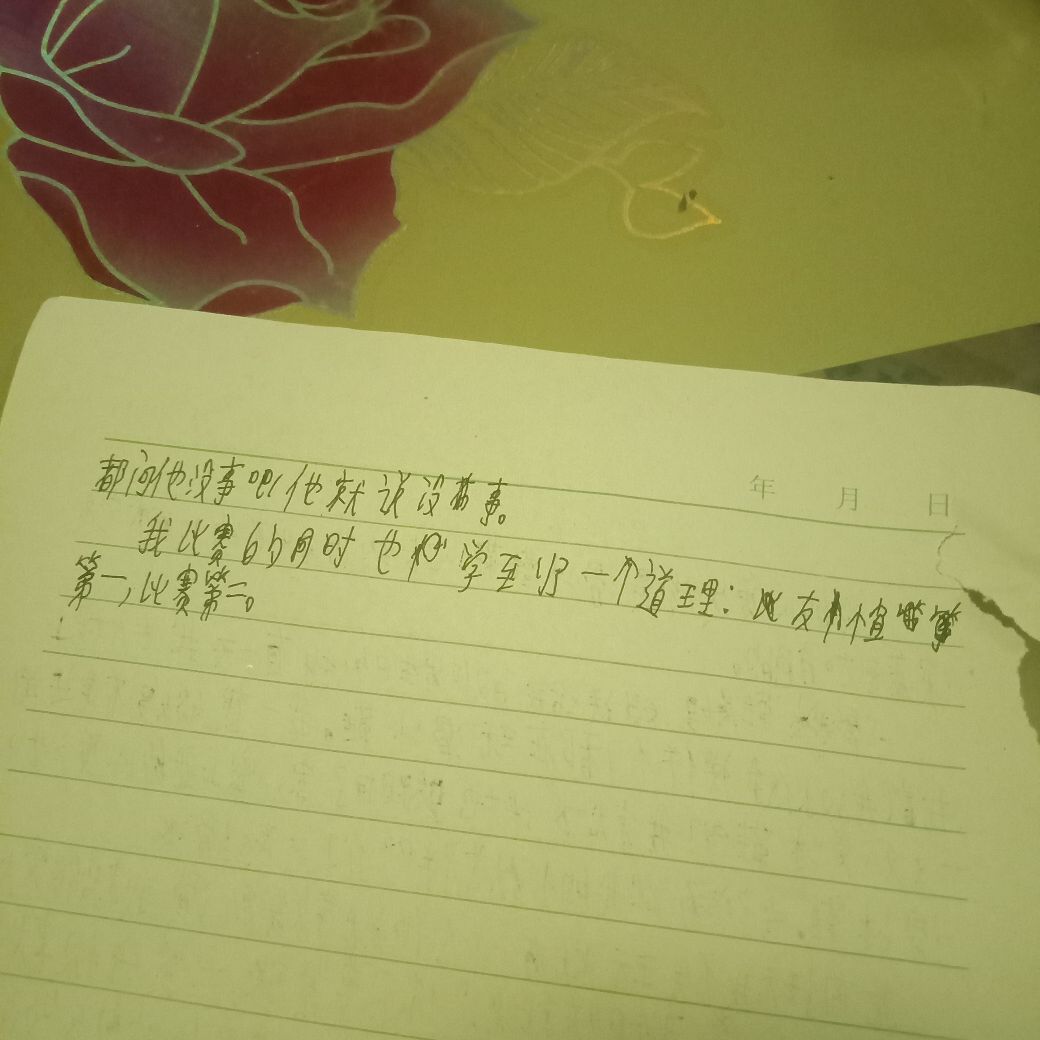 年 月 日
都问他没事吧他就说没事。
我比赛的同时也学到了一个道理：友谊第
第一，比赛第二。